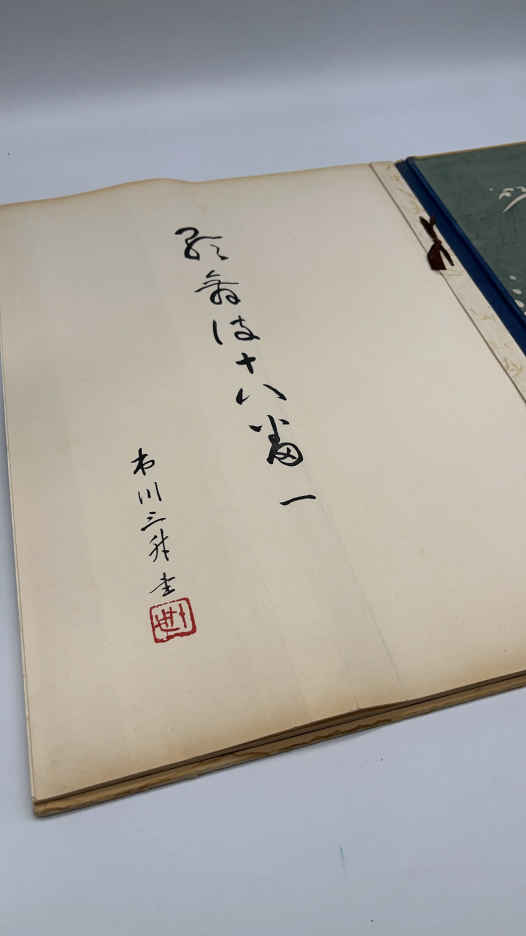 歌舞伎十八番 一
市川三升書